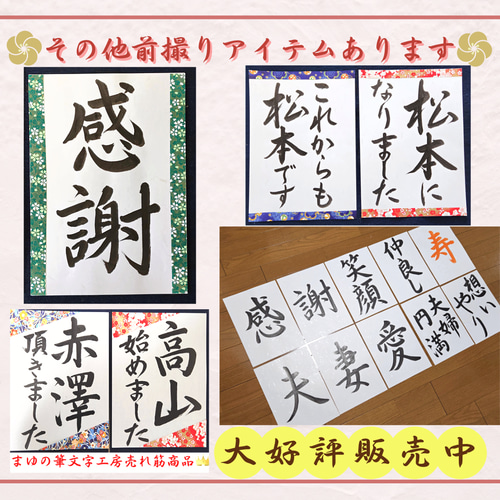 その他前撮りアイテムあります
感謝
松本に
なりました
これからも
松本です
寿
仲良し
笑顔
謝
感
想いやり
夫婦円満
愛
妻
夫
高山
始めました
赤澤
頂きました
まゆの筆文字工房売れ筋商品
大好評販売中